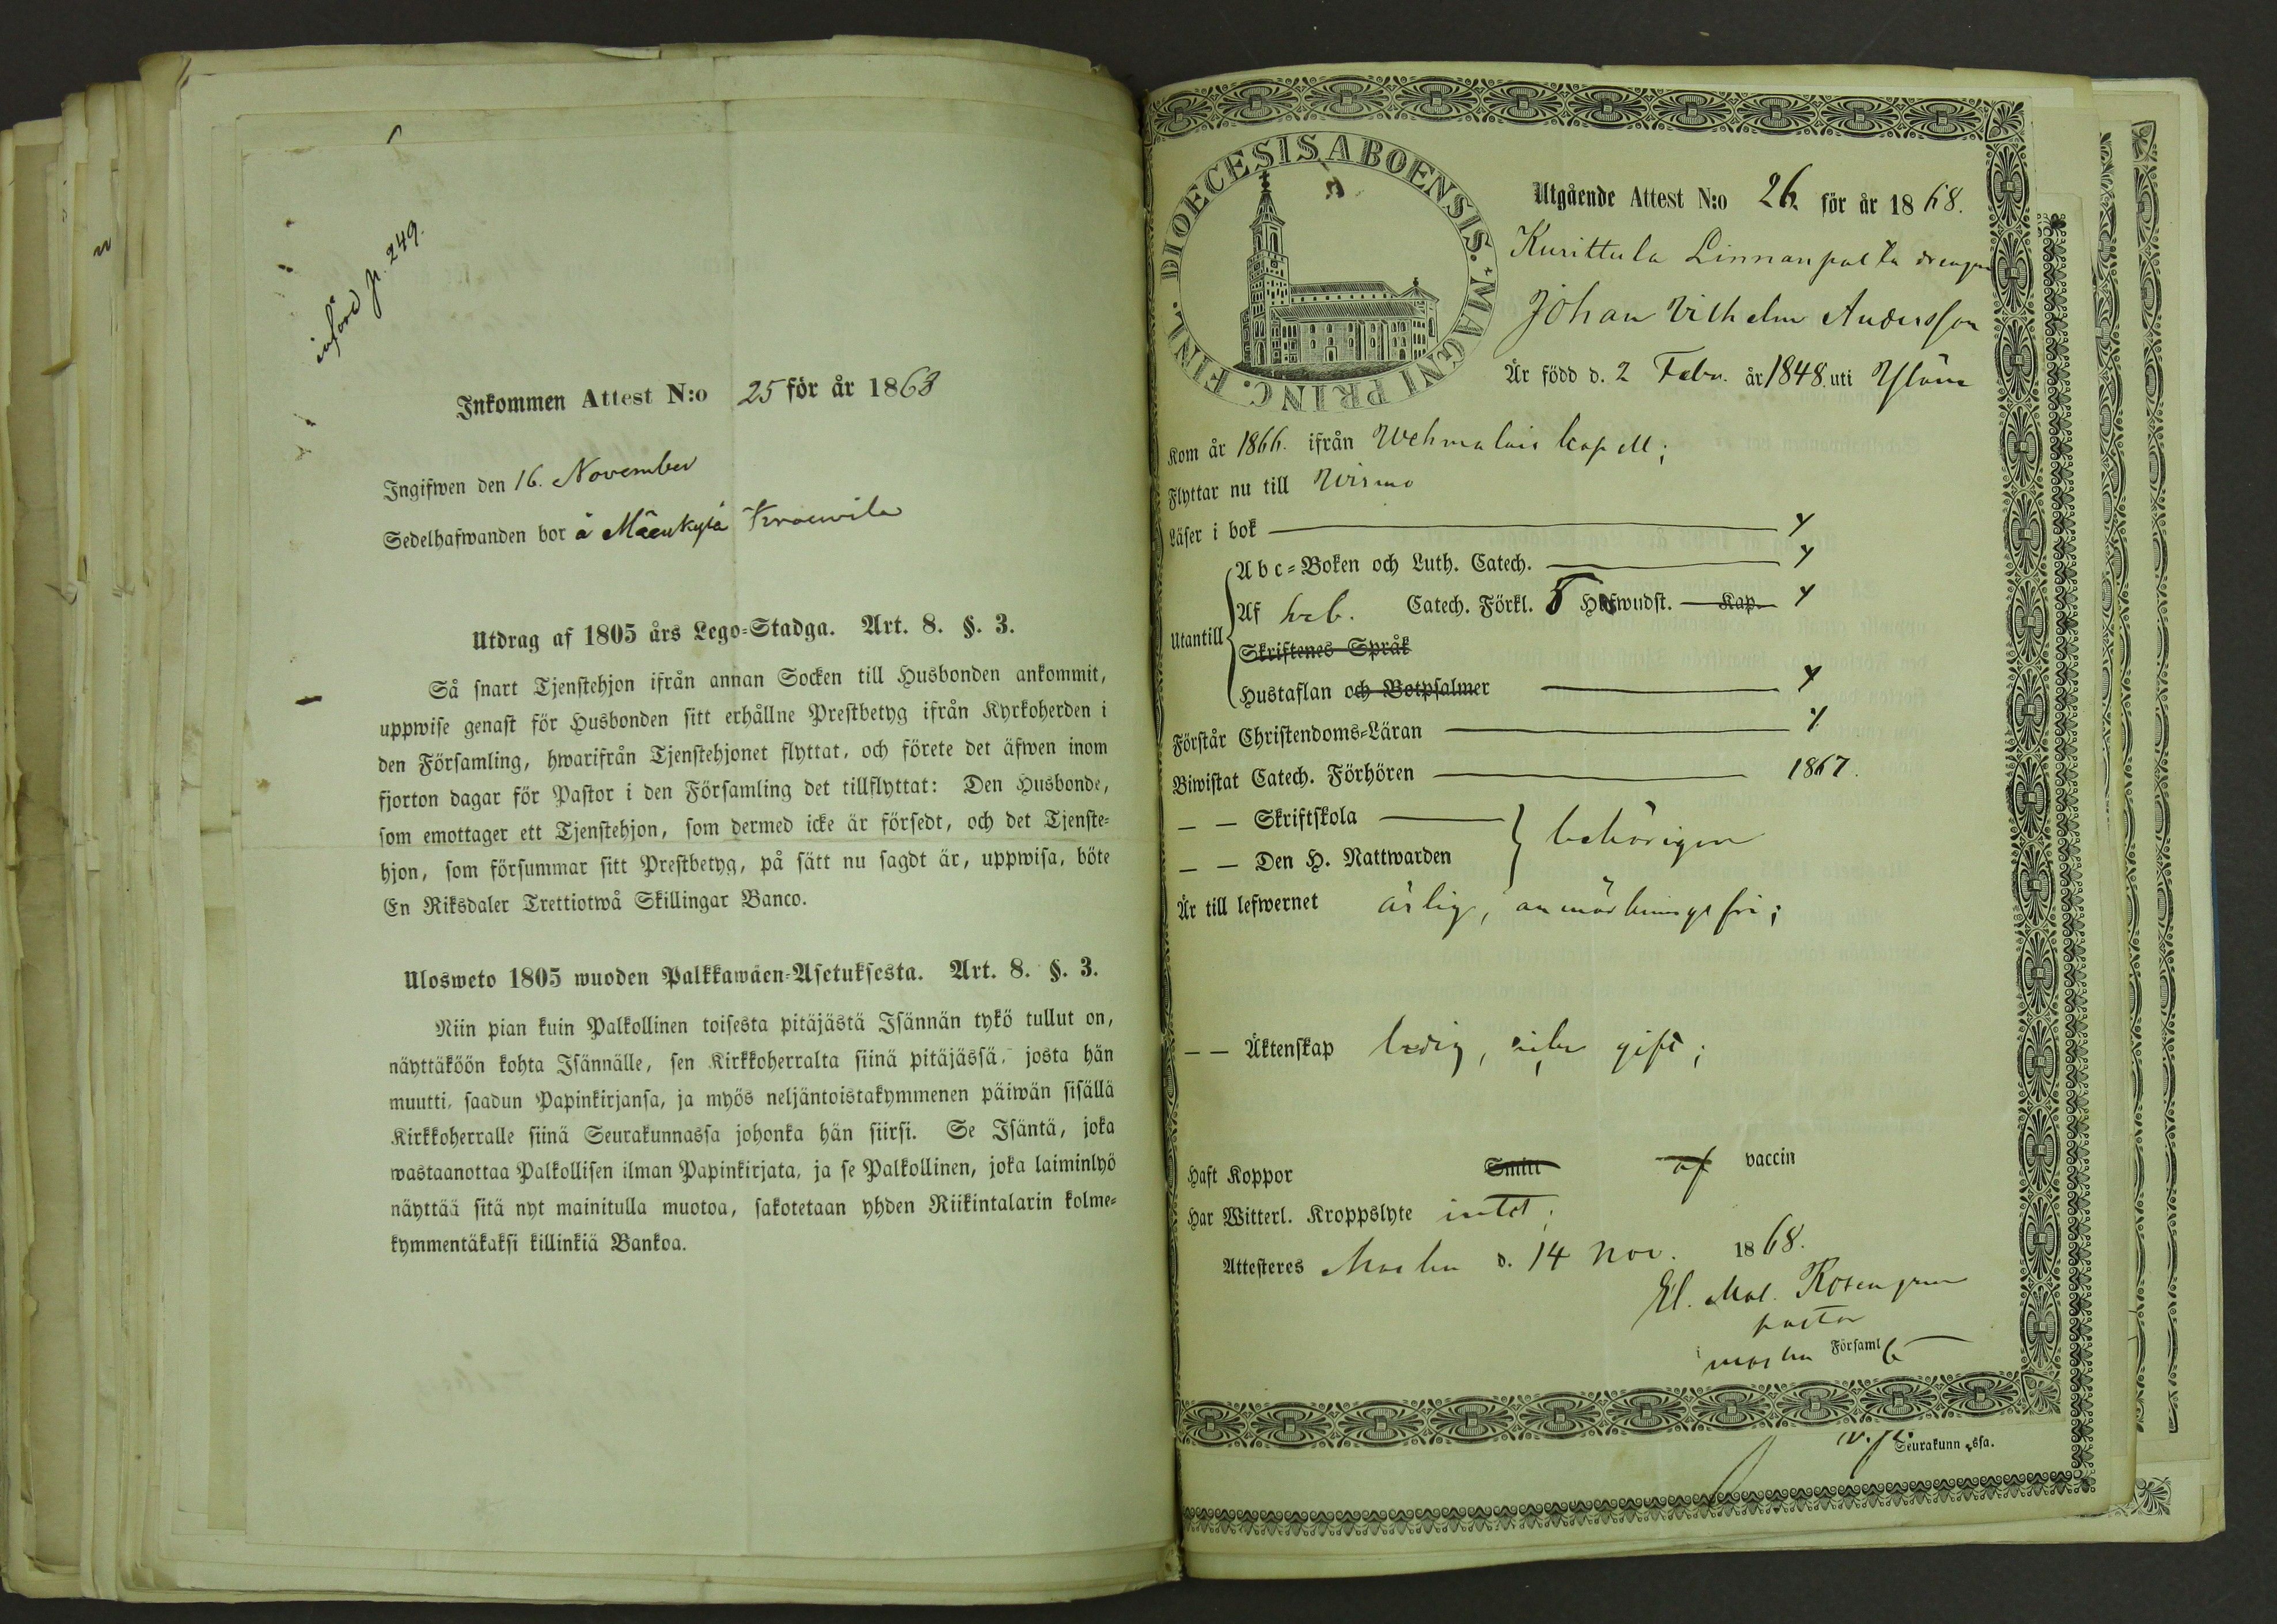 införd p. 249.
Inkommen Attest N:o 25 för år 1863
Ingifwen den 16. November
Sedelhafwanden bor å Mäenkylä
Utdrag af 1805 års Lego-Stadga. Art. 8. §. 3.
Så snart Tjenstehjon ifrån annan Socken till Husbonden ankommit,
uppwise genast för Husbonden sitt erhållne Prestbetyg ifrån Kyrkoherden i
den Församling, hwarifrån Tjenstehjonet flyttat, och förete det äfwen inom
fjorton dagar för Pastor i den Församling det tillflyttat: Den Husbonde,
som emottager ett Tjenstehjon, som dermed icke är försedt, och det Tjenste-
hjon, som försummar sitt Prestbetyg, på sätt nu sagdt är, uppwisa, böte
En Riksdaler Trettiotwå Skillingar Banco.
Ulosweto 1805 wuoden Palkkawäen-Asetuksesta. Art. 8. §. 3.
Niin pian kuin Palkollinen toisesta pitäjästä Isännän tykö tullut on,
näyttäköön kohta Isännälle, sen Kirkkoherralta siinä pitäjässä, josta hän
muutti, saadun Papinkirjansa, ja myös neljäntoistakymmenen päiwän sisällä
Kirkkoherralle siinä Seurakunnassa johonka hän siirsi. Se Isäntä, joka
wastaanottaa Palkollisen ilman Papinkirjata, ja se Palkollinen, joka laiminlyö
näyttää sitä nyt mainitulla muotoa, sakotetaan yhden Riikintalarin kolme-
kymmentäkaksi killinkiä Bankoa.
DIOECESIS ABOENSIS. MAGNI PRINC. FINL.
Utgående Attest N:o 26 för år 1868.
Kurittula Linnanpalta drengen
Johan Vilhelm Andersson
Är född d. 2 Febr. år 1848. uti Yläne
Kom år 1866. ifrån Wehmalais kapell;
Flyttar nu till Wirmo
Läser i bok
Utantill
Abc-Boken och Luth. Catech.
Af Catech. Förkl. 5 Hufwudst. Kap.
Skriftenes Språk
Hustaflan och Botpsalmer
Förstår Christendoms-Läran
Biwistat Catech. Förhören 1867.
— — Skriftskola
behörigen
— — Den H. Nattwarden
Är till lefwernet ärlig, anmärkningsfri;
— — Äktenskap ledig, gift;
Haft Koppor Smitt af vaccin
Har Witterl. Kroppslyte intet;
Attesteres Masku d. 14 Nov. 1868.
El. Mal. Rosengren
pastor
i Masku Församl
Seurakunn ssa.